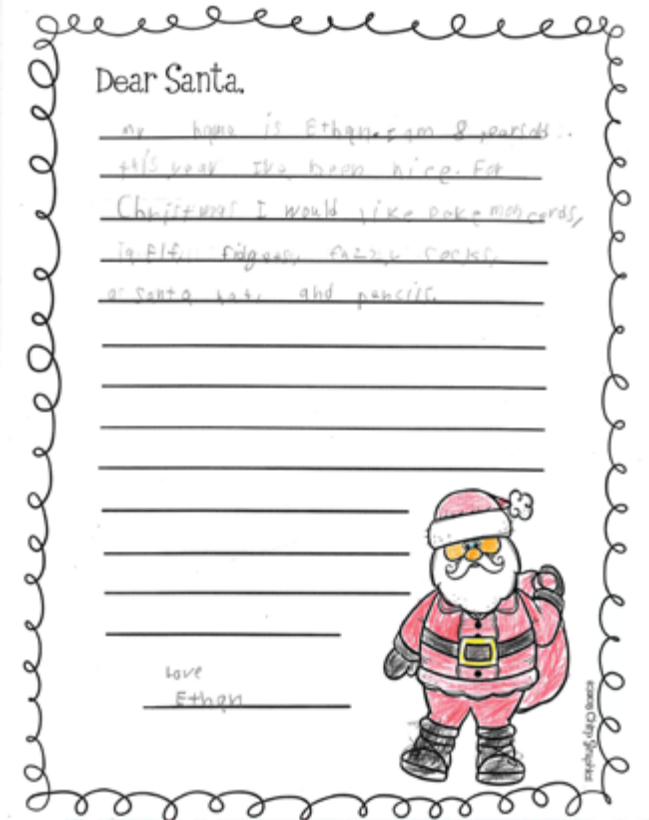 Dear Santa,
my name is Ethan. I am 8 years old.
this year Ive been nice. For
Christmas I would like Pokemon cards,
Elf, fidgets, fuzzy socks,
a Santa hat, and pencils.
Love
Ethan